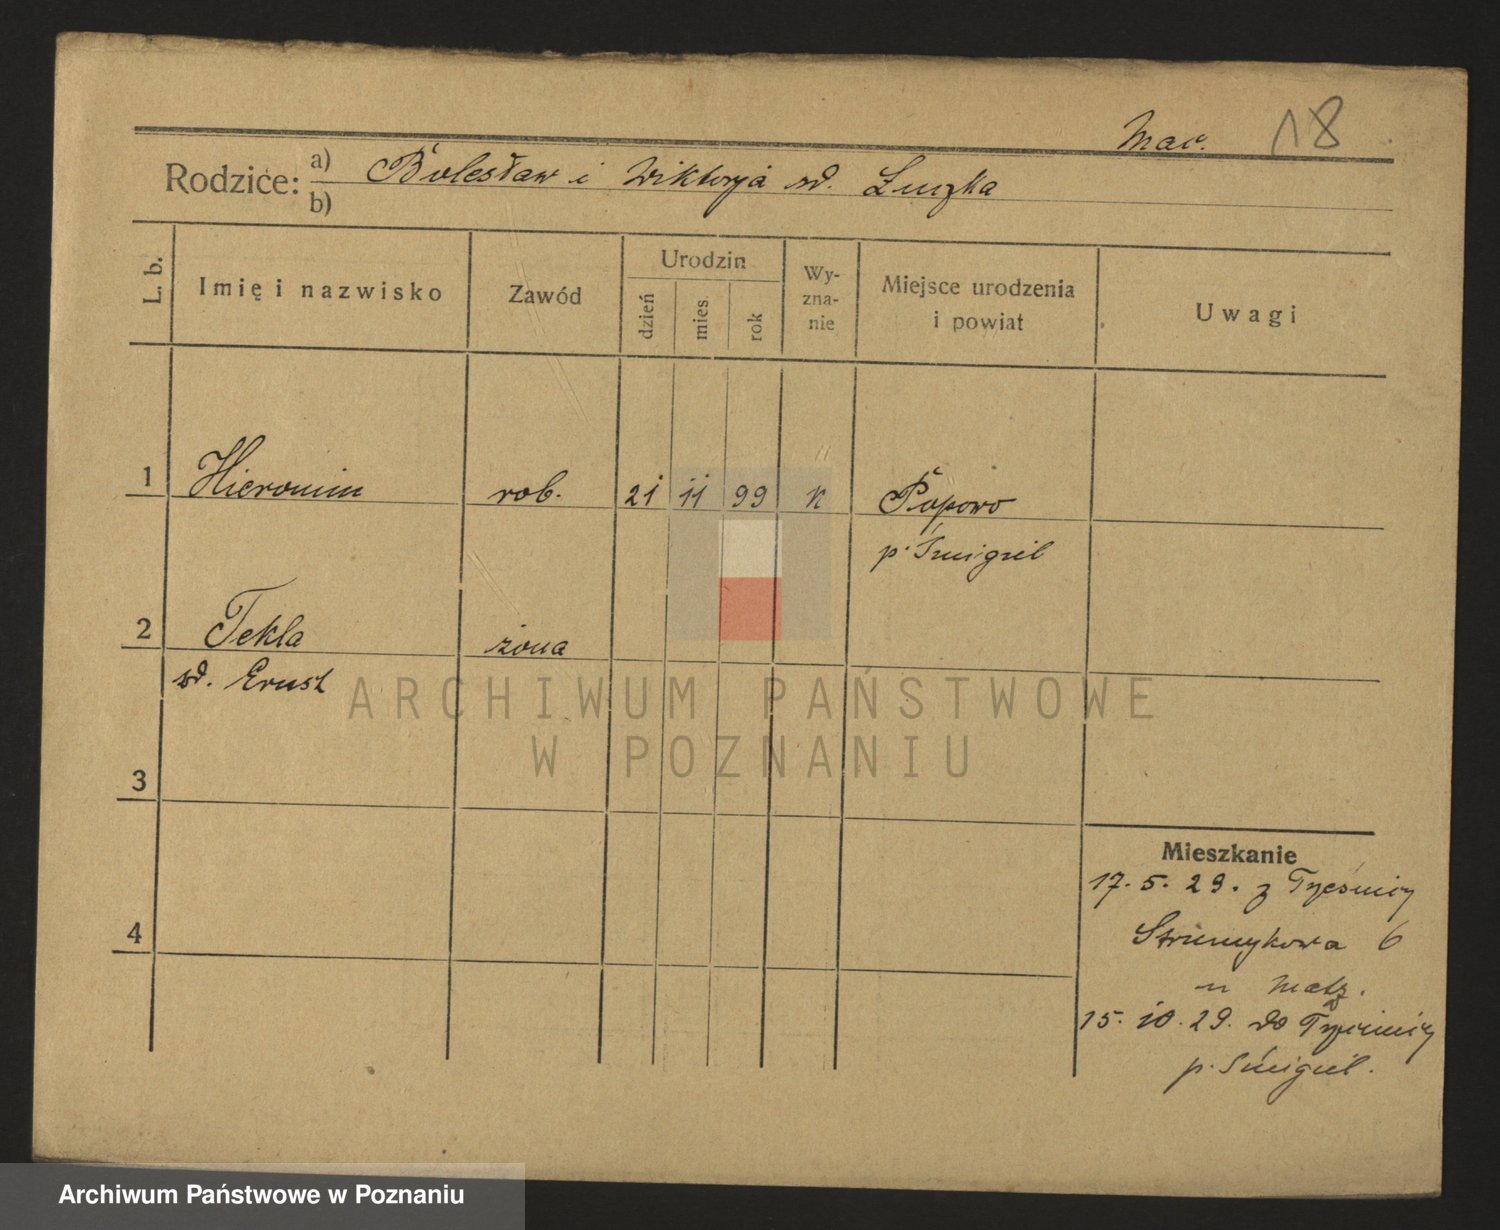 Mac. 18
Rodzice: a) Bolesław i Wiktorja zd. Łuczka
b)
L. b.
Imię i nazwisko
Zawód
Urodzin
dzień
mies.
rok
Wy-
zna-
nie
Miejsce urodzenia
i powiat
Uwagi
1 Hieronim rob. 21 11 99 K Popowo
p. Śmigiel
2 Tekla żona
zd. Ernst
ARCHIWUM PAŃSTWOWE
W POZNANIU
3
Mieszkanie
17. 5. 29. z
4
Strumykowa 6
u
15. 10. 29. do
p. Śmigiel.
Archiwum Państwowe w Poznaniu